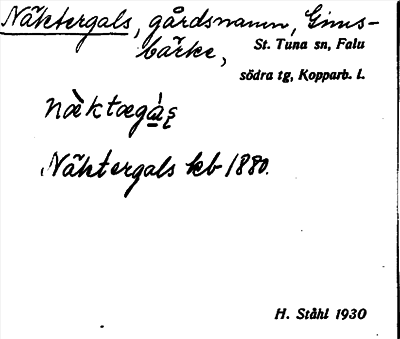 Näktergals, gårdsnamn, Gims-
bärke, St. Tuna sn, Falu
södra tg, Kopparb. l.
Näktergals kb 1880.
H. Ståhl 1930